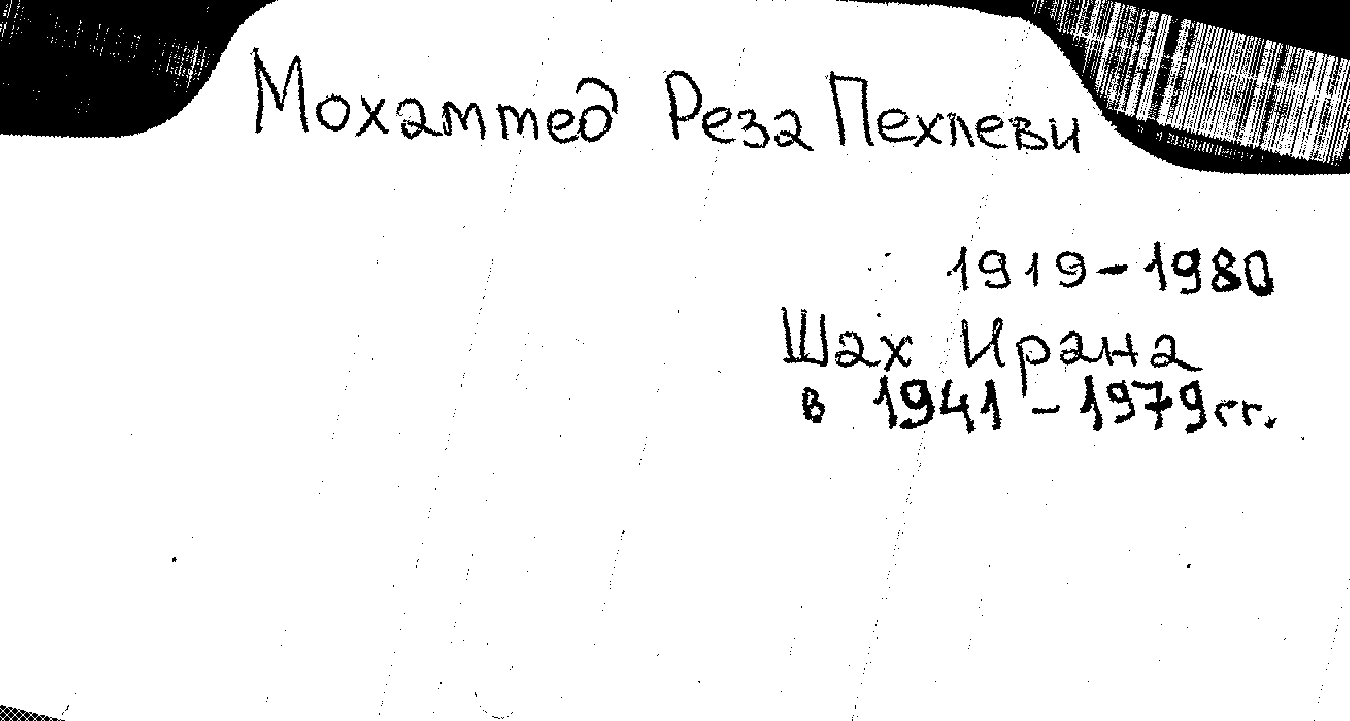 Мохаммед Реза Пехлеви
1919-1980
Шах Ирана
в 1941-1979гг.